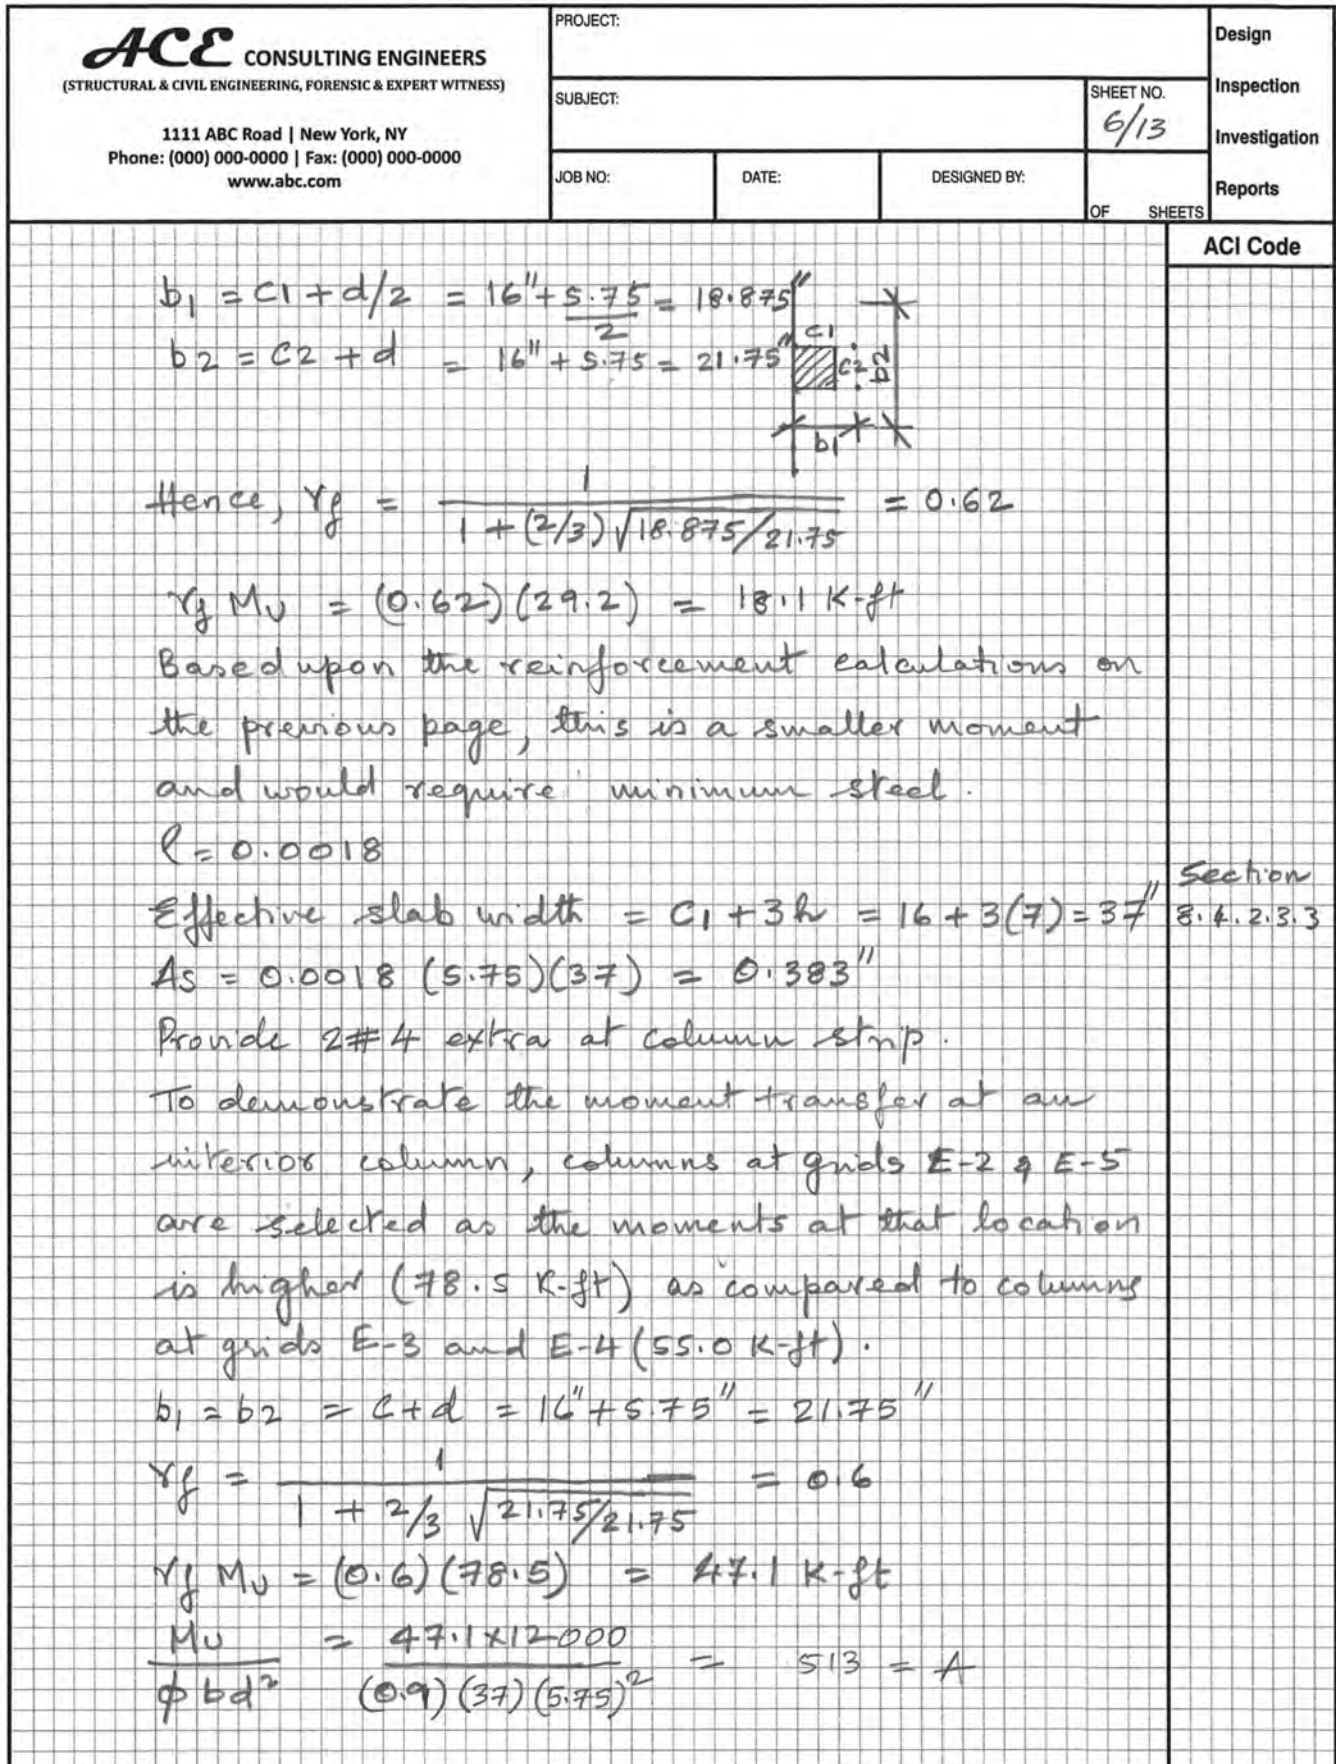 ACE CONSULTING ENGINEERS
(STRUCTURAL & CIVIL ENGINEERING, FORENSIC & EXPERT WITNESS)
1111 ABC Road | New York, NY
Phone: (000) 000-0000 | Fax: (000) 000-0000
www.abc.com
PROJECT:
SUBJECT:
SHEET NO.
6/13
JOB NO:
DATE:
DESIGNED BY:
OF SHEETS
Design
Inspection
Investigation
Reports
ACI Code
b1 = C1 + d/2 = 16" + 5.75/2 = 18.875"
b2 = C2 + d = 16" + 5.75 = 21.75"
C1
C2
b2
b1
Hence, γf = 1 / (1 + (2/3) √18.875/21.75) = 0.62
γf Mu = (0.62)(29.2) = 18.1 K-ft
Based upon the reinforcement calculations on
the previous page, this is a smaller moment
and would require minimum steel.
ρ = 0.0018
Effective slab width = C1 + 3h = 16 + 3(7) = 37"
Section
8.4.2.3.3
As = 0.0018 (5.75)(37) = 0.383"
Provide 2#4 extra at column strip.
To demonstrate the moment transfer at an
interior column, columns at grids E-2 & E-5
are selected as the moments at that location
is higher (78.5 K-ft) as compared to columns
at grids E-3 and E-4 (55.0 K-ft).
b1 = b2 = C+d = 16" + 5.75" = 21.75"
γf = 1 / (1 + 2/3 √21.75/21.75) = 0.6
γf Mu = (0.6)(78.5) = 47.1 K-ft
Mu / ϕbd² = 47.1×12000 / (0.9)(37)(5.75)² = 513 = A